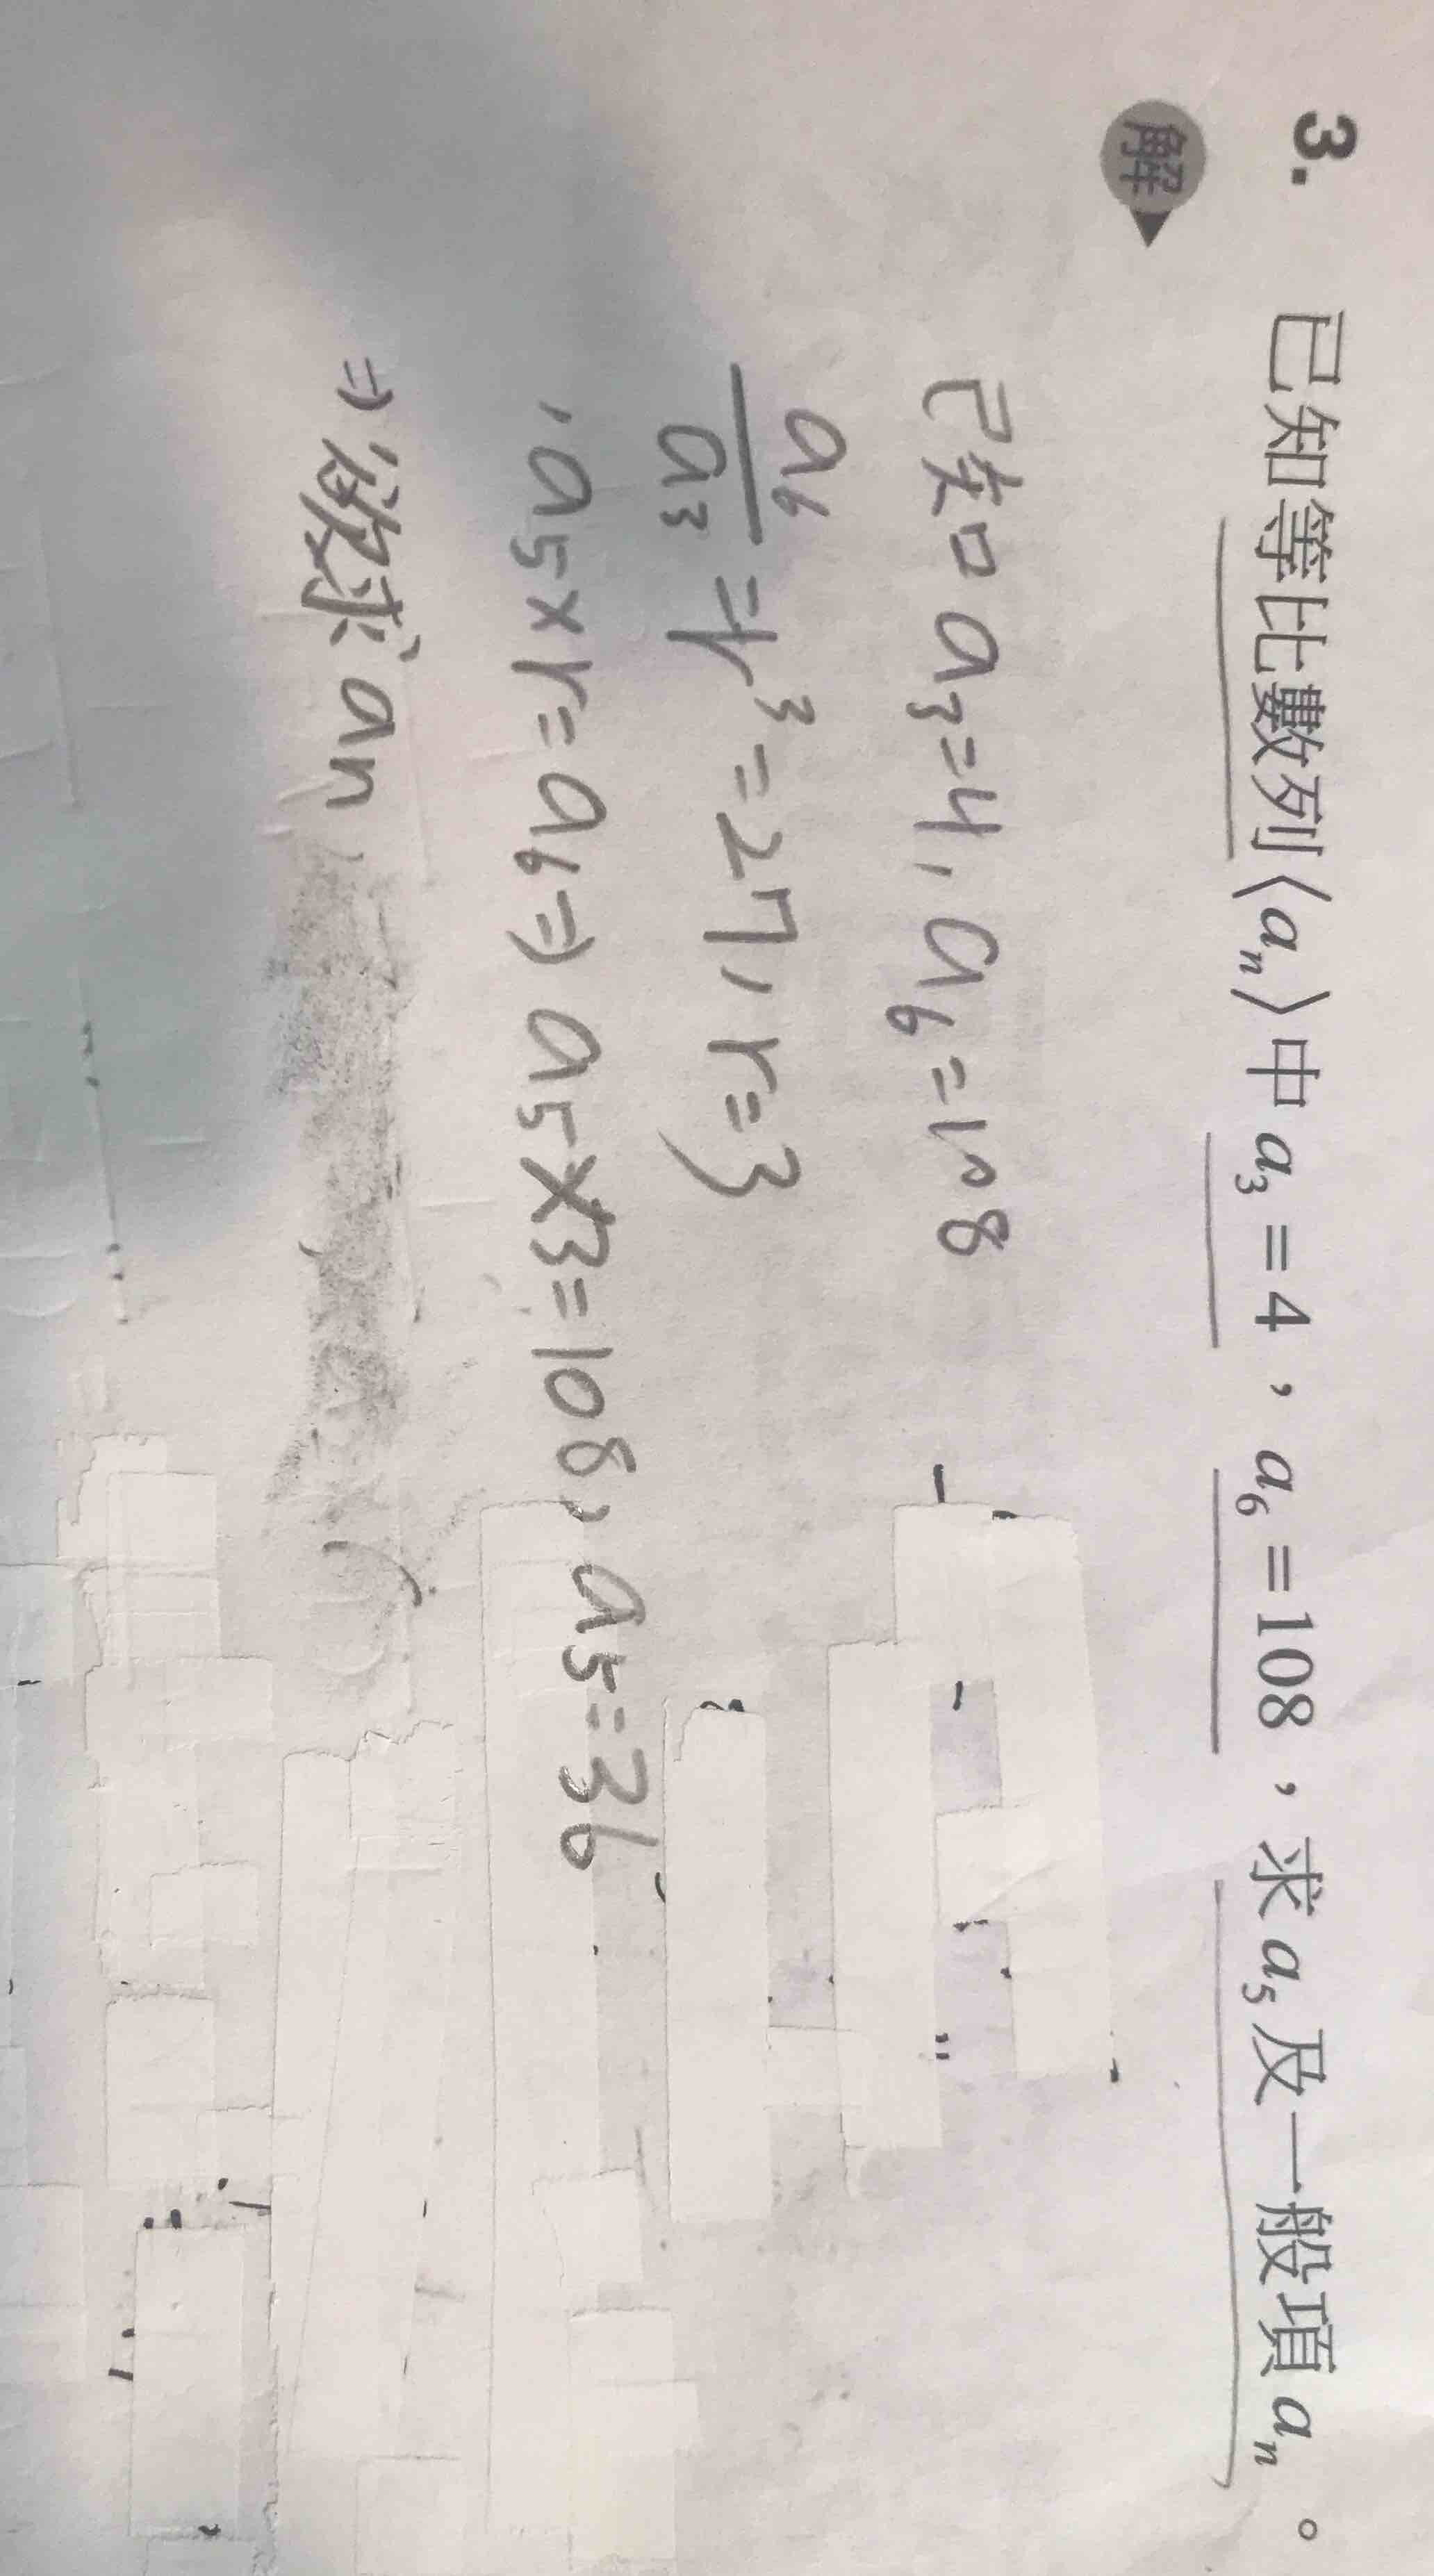 3. 已知等比數列⟨aₙ⟩中 a₃ = 4，a₆ = 108，求 a₅ 及一般項 aₙ。
解
已知 a₃=4, a₆=108
a₆/a₃ = r³ = 27, r=3
, a₅×r=a₆ ⇒ a₅×3=108, a₅=36
⇒ 欲求 an